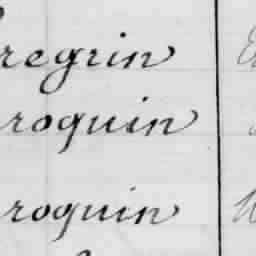 regrin
roquin
roquin